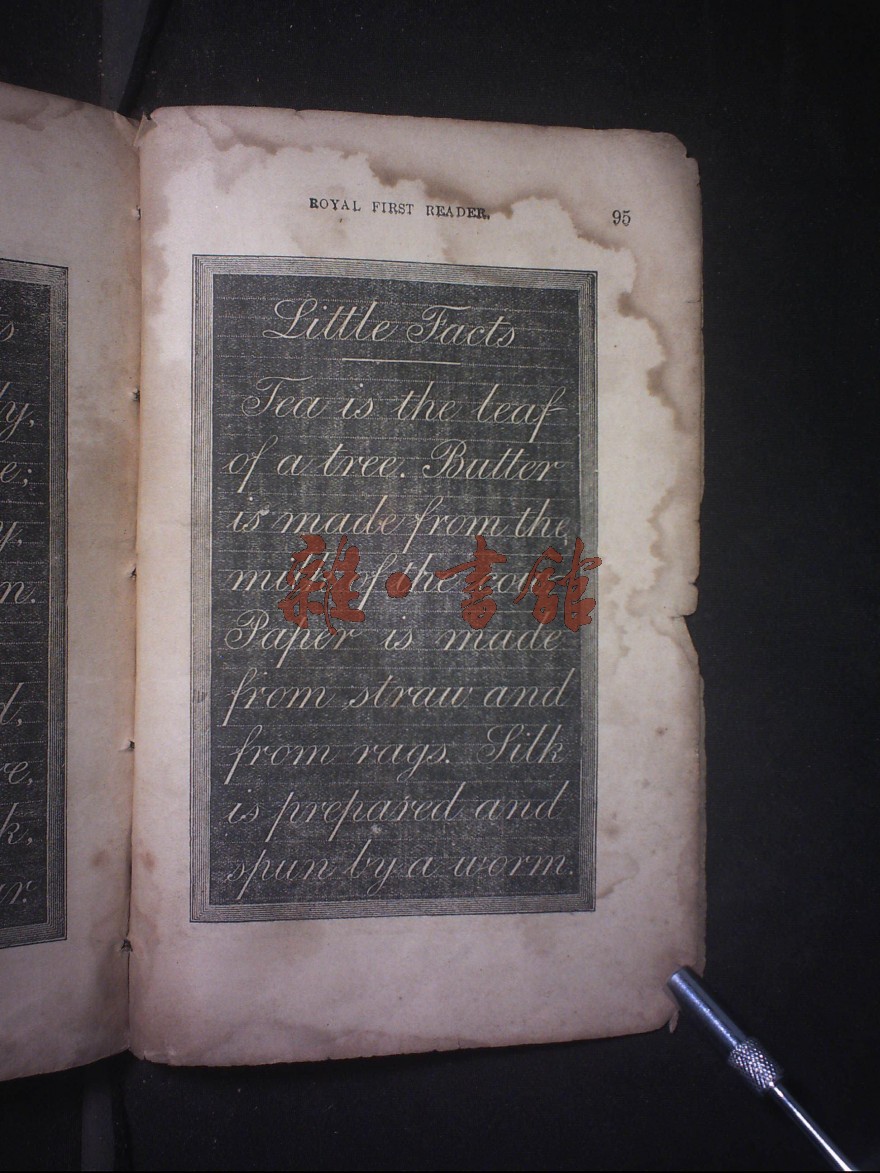 ROYAL FIRST READER.
95
Little Facts
Tea is the leaf
of a tree. Butter
is made from the
milk of the cow.
Paper is made
from straw and
from rags. Silk
is prepared and
spun by a worm.
雜·書館
s
ly,
e;
y,
n.
d,
re,
k,
ur.